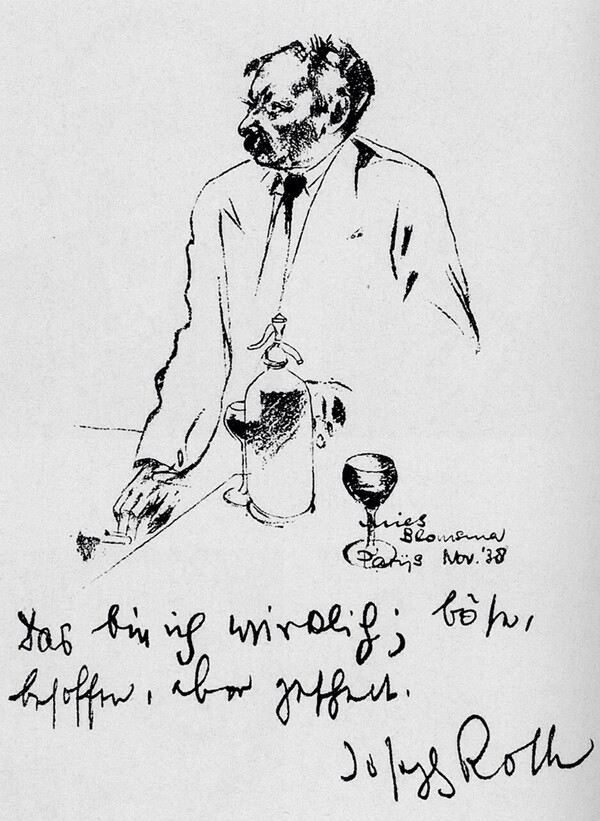 Mies
Blomsma
Parijs Nov.'38
Das bin ich wirklich; böse,
besoffen, aber gescheit.
Joseph Roth